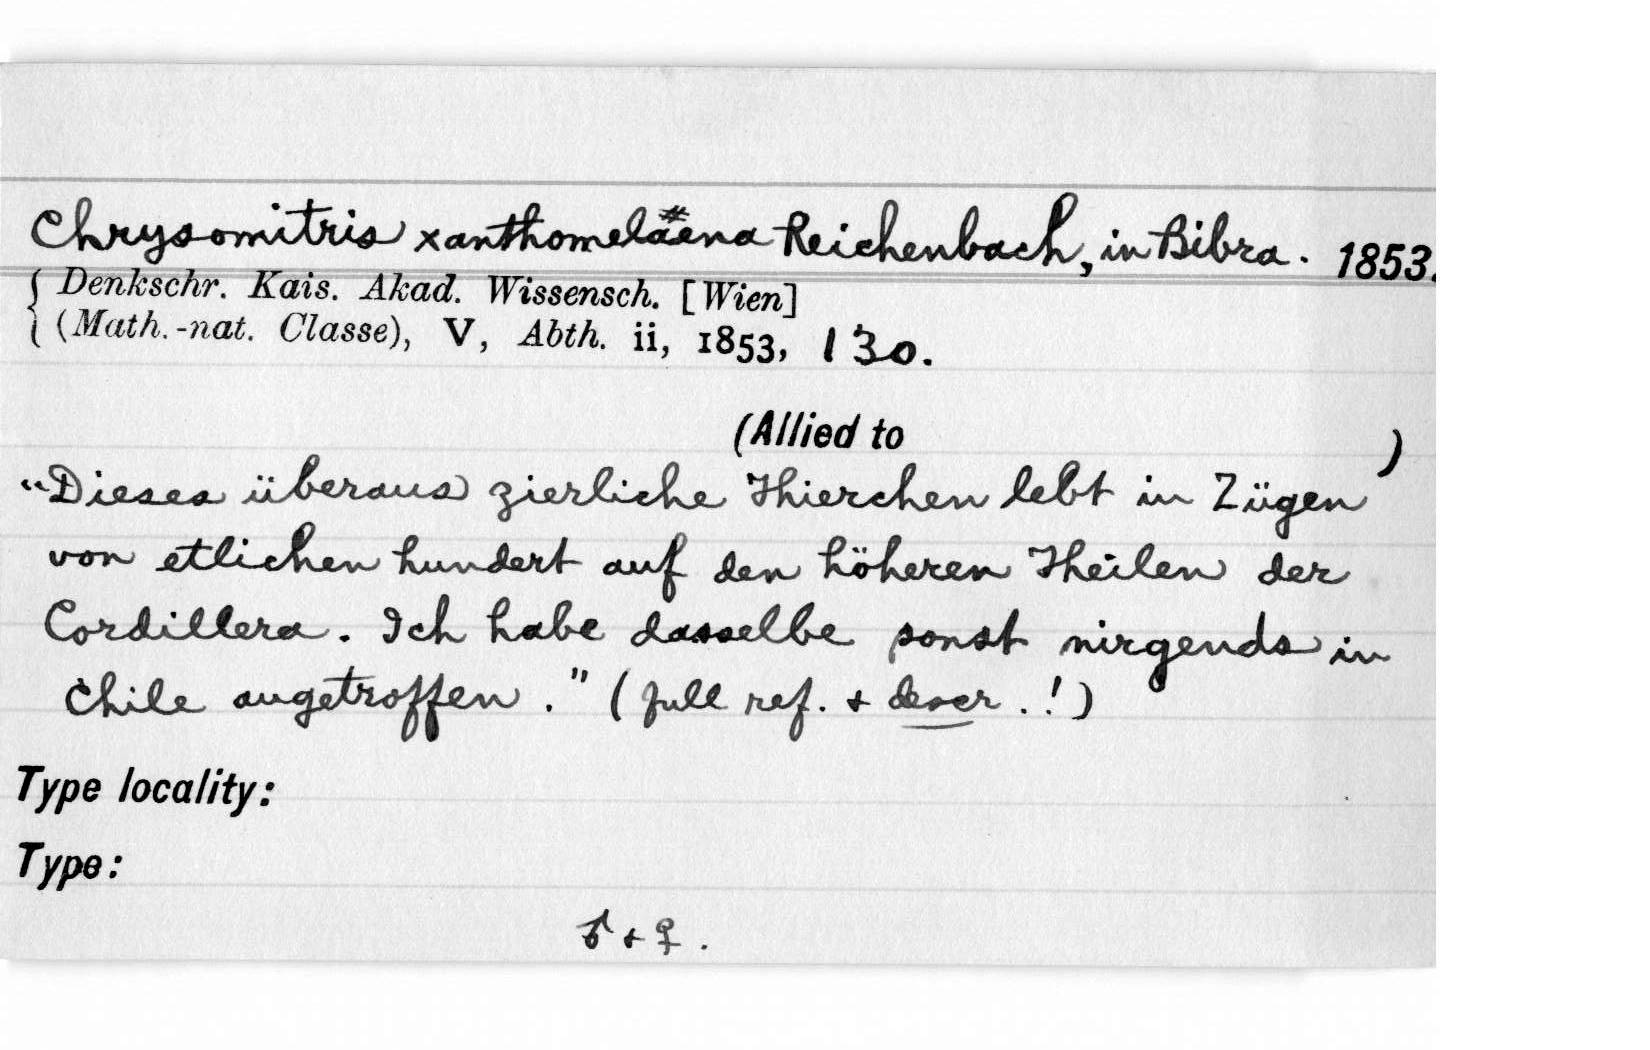 Chrysomitris xanthomelaena Reichenbach, in Bibra. 1853.
{ Denkschr. Kais. Akad. Wissensch. [Wien]
(Math.-nat. Classe), V, Abth. ii, 1853, 130.
(Allied to )
"Dieses überaus zierliche Thierchen lebt in Zügen
von etlichen hundert auf den höheren Theilen der
Cordillera. Ich habe dasselbe sonst nirgends in
Chile angetroffen." (full ref. + descr.!)
Type locality:
Type:
♂ + ♀.